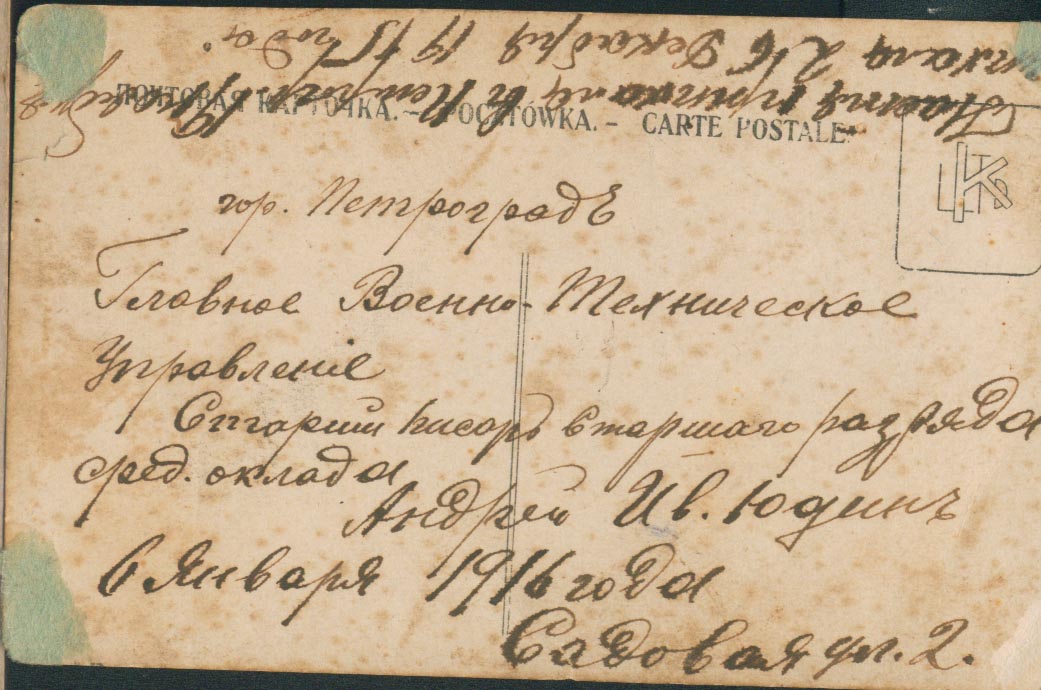 ПОЧТОВАЯ КАРТОЧКА. – POCZTÓWKA. – CARTE POSTALE.
гор. Петроградъ
Главное Военно-Техническое
Управленіе
Старшій писарь старшаго разряда
сред. оклада
Андрей Ив. Юдинъ
6 Января 1916 года
Садовая ул. 2.
Настя приехала въ
26 Декабря 1915 года.